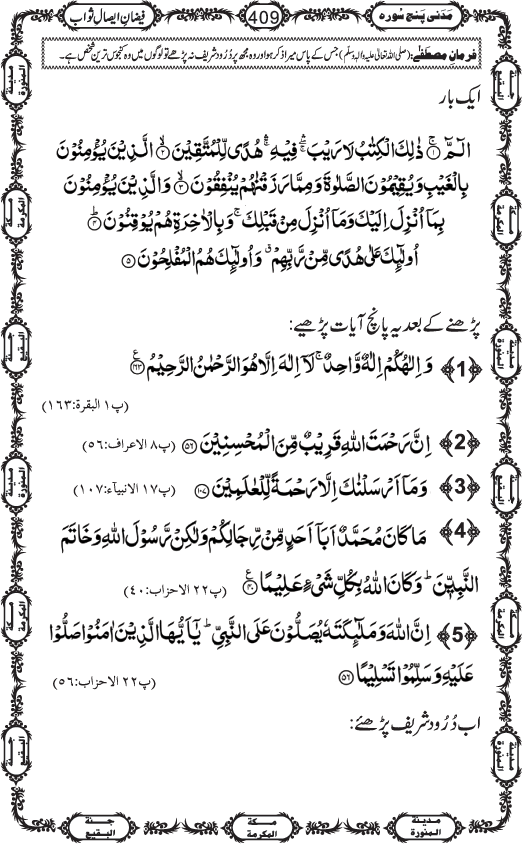 مَدَنی پنج سورہ
409
فیضانِ ایصالِ ثواب
فرمانِ مصطَفٰے: (صلی اللہ تعالیٰ علیہ والہٖ وسلّم) جس کے پاس میرا ذکر ہو اور وہ مجھ پر دُرُود شریف نہ پڑھے تو لوگوں میں وہ کنجوس ترین شخص ہے۔
ایک بار
الٓمّٓ ۚ﴿۱﴾ ذٰلِكَ الْكِتٰبُ لَا رَیْبَ ۚۛ فِیْهِ ۚۛ هُدًى لِّلْمُتَّقِیْنَ ۙ﴿۲﴾ الَّذِیْنَ یُؤْمِنُوْنَ
بِالْغَیْبِ وَ یُقِیْمُوْنَ الصَّلٰوةَ وَ مِمَّا رَزَقْنٰهُمْ یُنْفِقُوْنَ ۙ﴿۳﴾ وَ الَّذِیْنَ یُؤْمِنُوْنَ
بِمَاۤ اُنْزِلَ اِلَیْكَ وَ مَاۤ اُنْزِلَ مِنْ قَبْلِكَ ۚ وَ بِالْاٰخِرَةِ هُمْ یُوْقِنُوْنَ ؕ﴿۴﴾
اُولٰٓىِٕكَ عَلٰى هُدًى مِّنْ رَّبِّهِمْ ۗ وَ اُولٰٓىِٕكَ هُمُ الْمُفْلِحُوْنَ ﴿۵﴾
پڑھنے کے بعد یہ پانچ آیات پڑھیے:
﴿1﴾ وَ اِلٰهُكُمْ اِلٰهٌ وَّاحِدٌ ۚ لَاۤ اِلٰهَ اِلَّا هُوَ الرَّحْمٰنُ الرَّحِیْمُ ﴿۱۶۳﴾
(پ۱ البقرة:۱۶۳)
﴿2﴾ اِنَّ رَحْمَتَ اللّٰهِ قَرِیْبٌ مِّنَ الْمُحْسِنِیْنَ ﴿۵۶﴾ (پ۸ الاعراف:۵۶)
﴿3﴾ وَ مَاۤ اَرْسَلْنٰكَ اِلَّا رَحْمَةً لِّلْعٰلَمِیْنَ ﴿۱۰۷﴾ (پ۱۷ الانبیآء:۱۰۷)
﴿4﴾ مَا كَانَ مُحَمَّدٌ اَبَاۤ اَحَدٍ مِّنْ رِّجَالِكُمْ وَ لٰكِنْ رَّسُوْلَ اللّٰهِ وَ خَاتَمَ
النَّبِیّٖنَ ؕ وَ كَانَ اللّٰهُ بِكُلِّ شَیْءٍ عَلِیْمًا ﴿۴۰﴾ (پ۲۲ الاحزاب:۴۰)
﴿5﴾ اِنَّ اللّٰهَ وَ مَلٰٓىِٕكَتَهٗ یُصَلُّوْنَ عَلَى النَّبِیِّ ؕ یٰۤاَیُّهَا الَّذِیْنَ اٰمَنُوْا صَلُّوْا
عَلَیْهِ وَ سَلِّمُوْا تَسْلِیْمًا ﴿۵۶﴾ (پ۲۲ الاحزاب:۵۶)
اب دُرُود شریف پڑھئے:
مدینة المنورة
جنة البقیع
مکة المکرمة
مکة المکرمة
جنة البقیع
مدینة المنورة
مدینة المنورة
جنة البقیع
مکة المکرمة
مکة المکرمة
جنة البقیع
مدینة المنورة
جنة البقیع
مکة المکرمة
مدینة المنورة